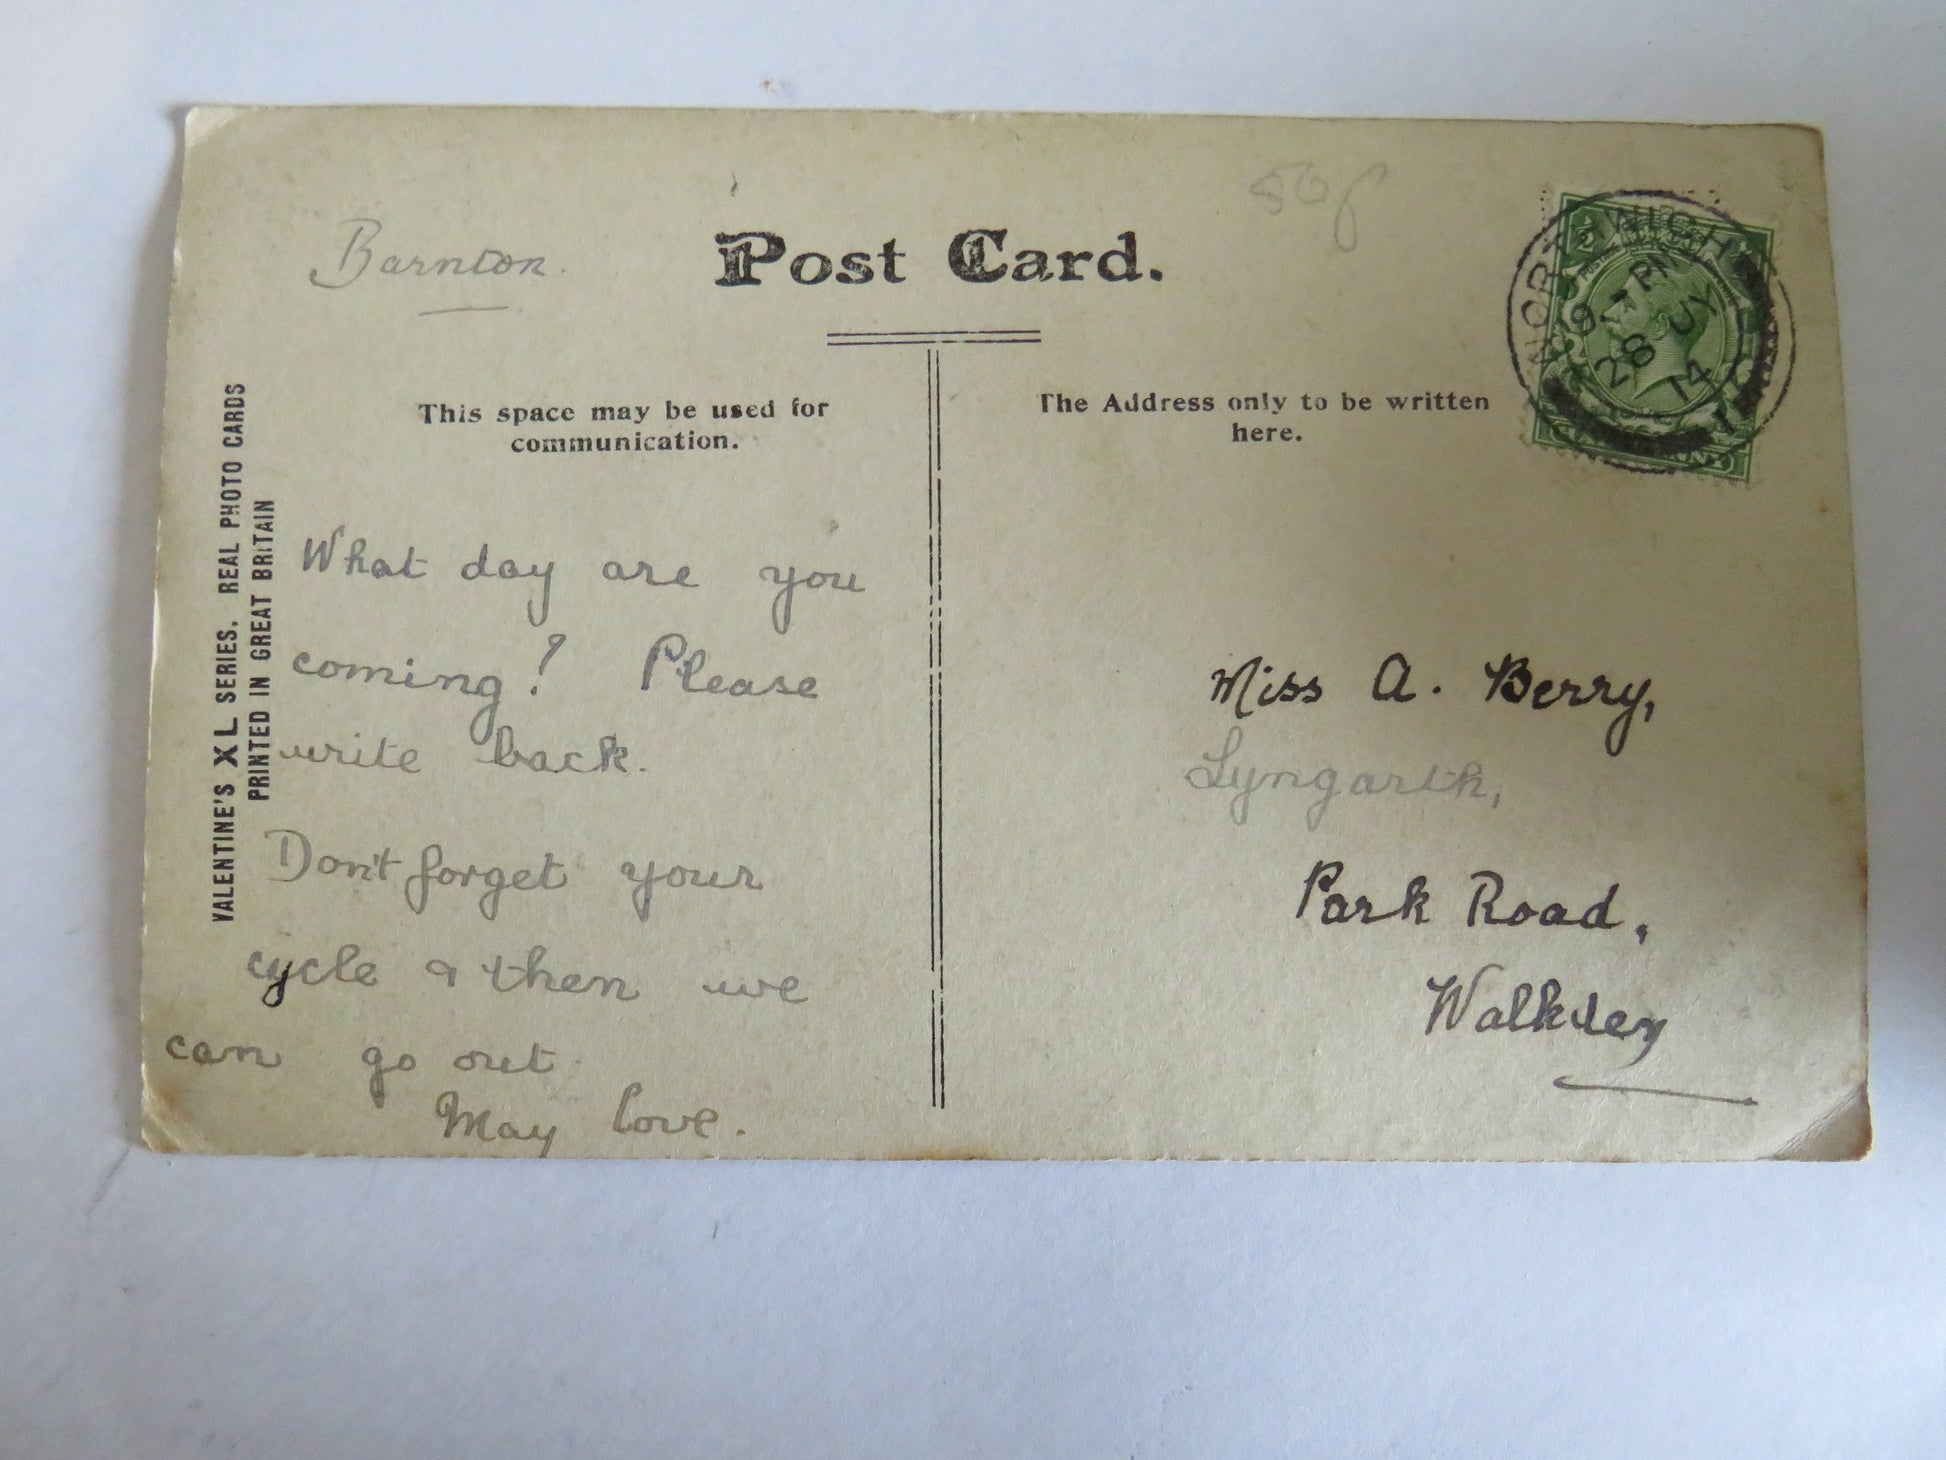 Barnton.
50p
Post Card.
NORTHWICH
9 15 PM
28 JY
14
This space may be used for
communication.
The Address only to be written
here.
VALENTINE'S XL SERIES. REAL PHOTO CARDS
PRINTED IN GREAT BRITAIN
What day are you
coming? Please
write back.
Don't forget your
cycle & then we
can go out.
May love.
Miss A. Berry,
Lyngarth,
Park Road,
Walkley